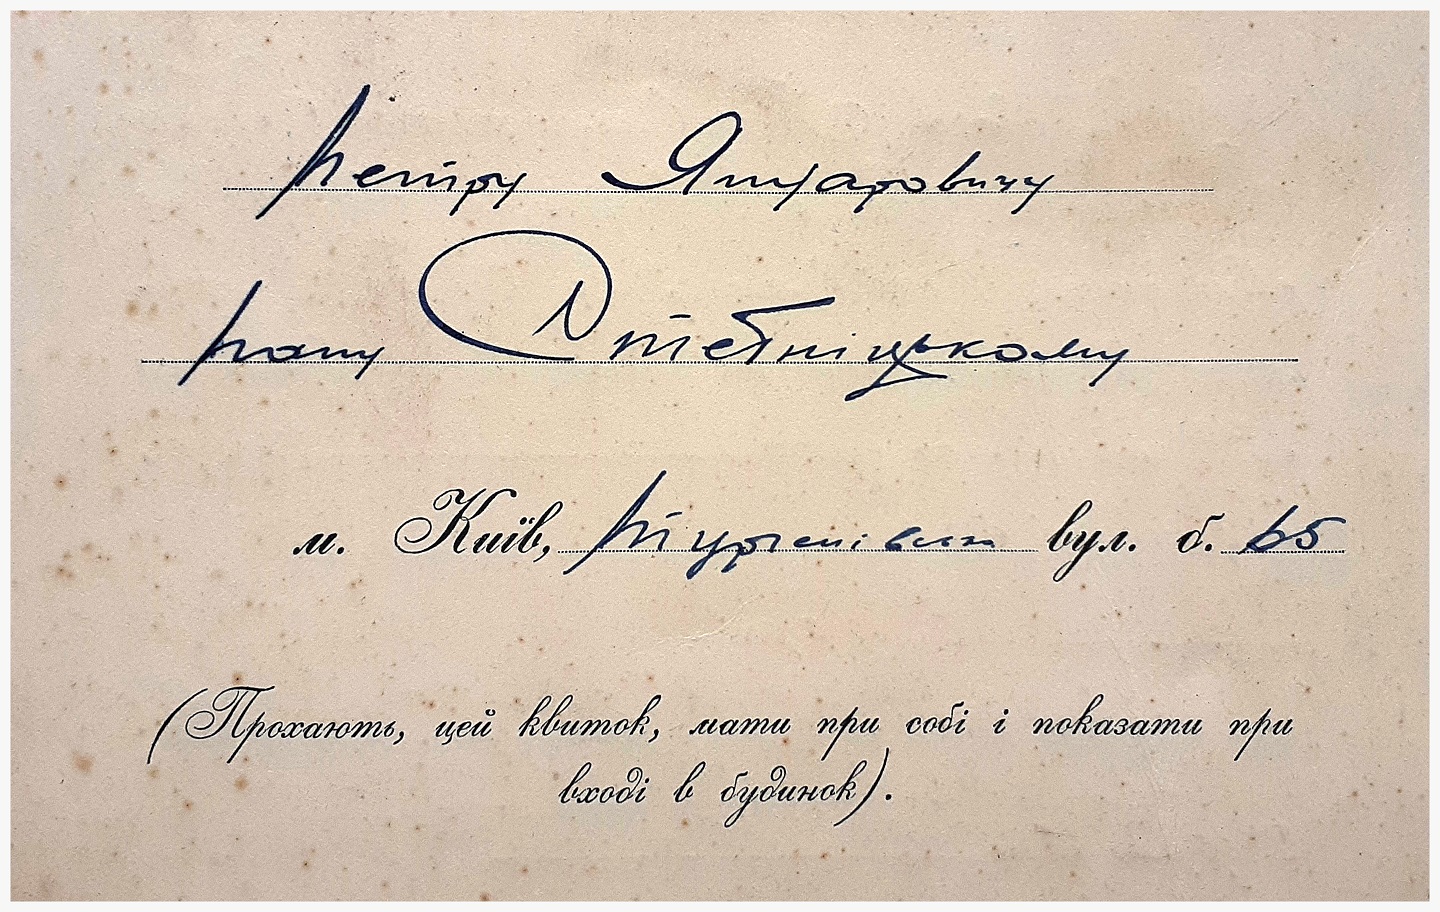 Петру Януаровичу
пану Стебніцькому
м. Київ, Тургенівська вул. б. 65
(Прохають, цей квиток, мати при собі і показати при
вході в будинок).